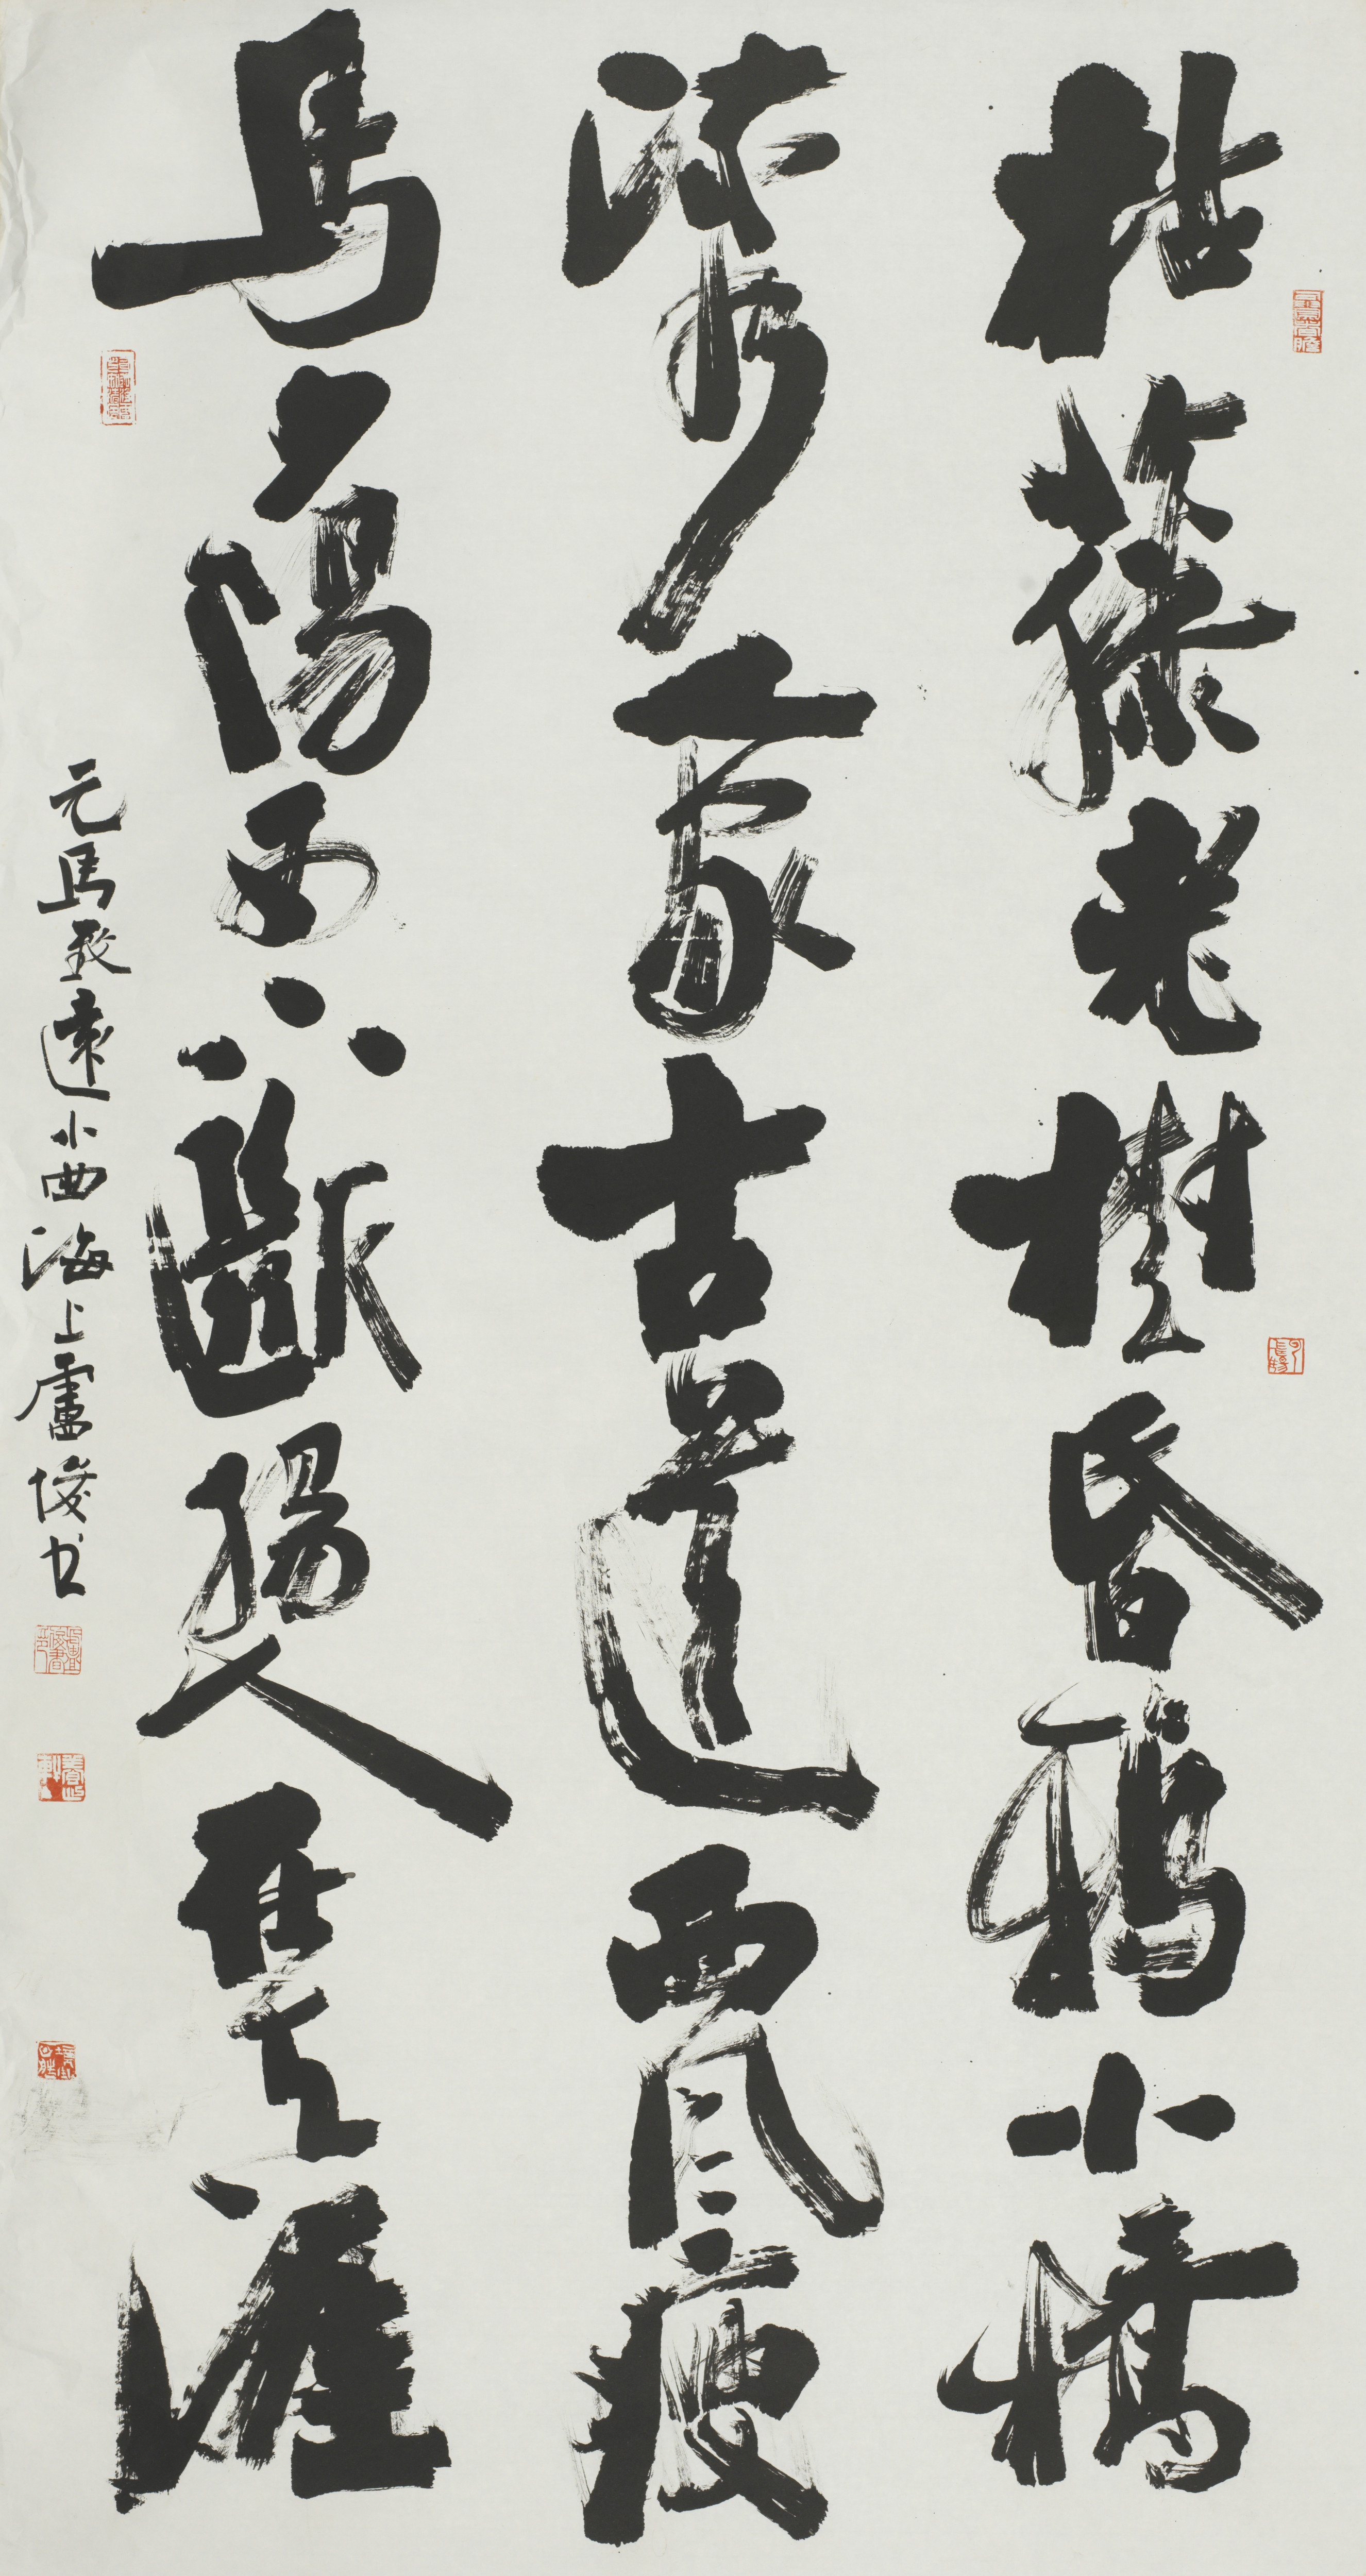 枯藤老樹昏鴉小橋
流水人家古道西風瘦
馬夕陽西下斷腸人在天涯
元馬致遠小曲海上盧俊书